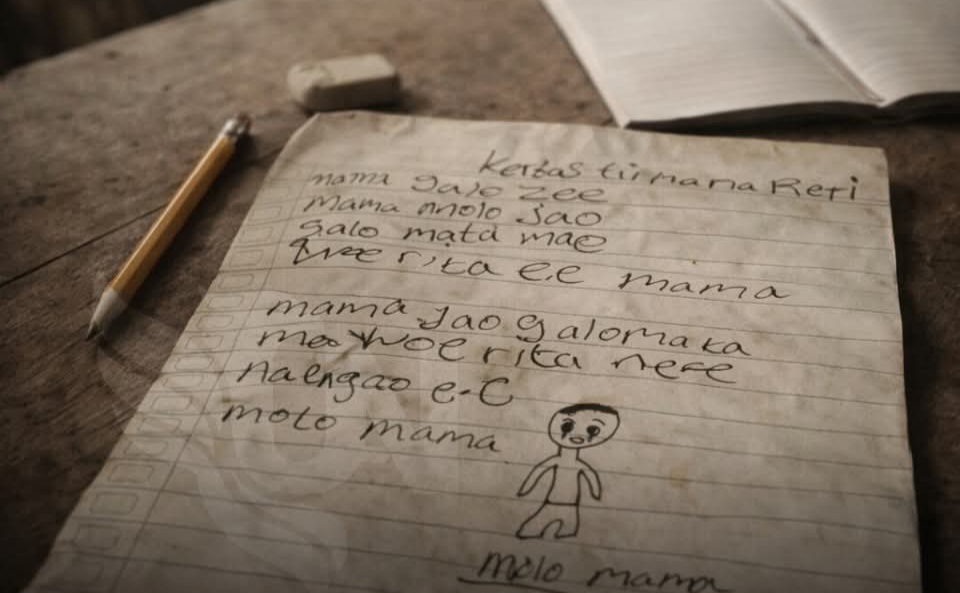 Kertas tii mama Reti
mama galo zee
mama molo Jao
galo mata mae
rita ee mama
mama Jao galo mata
mae woe rita nee
naengao e-C
molo mama
molo mama